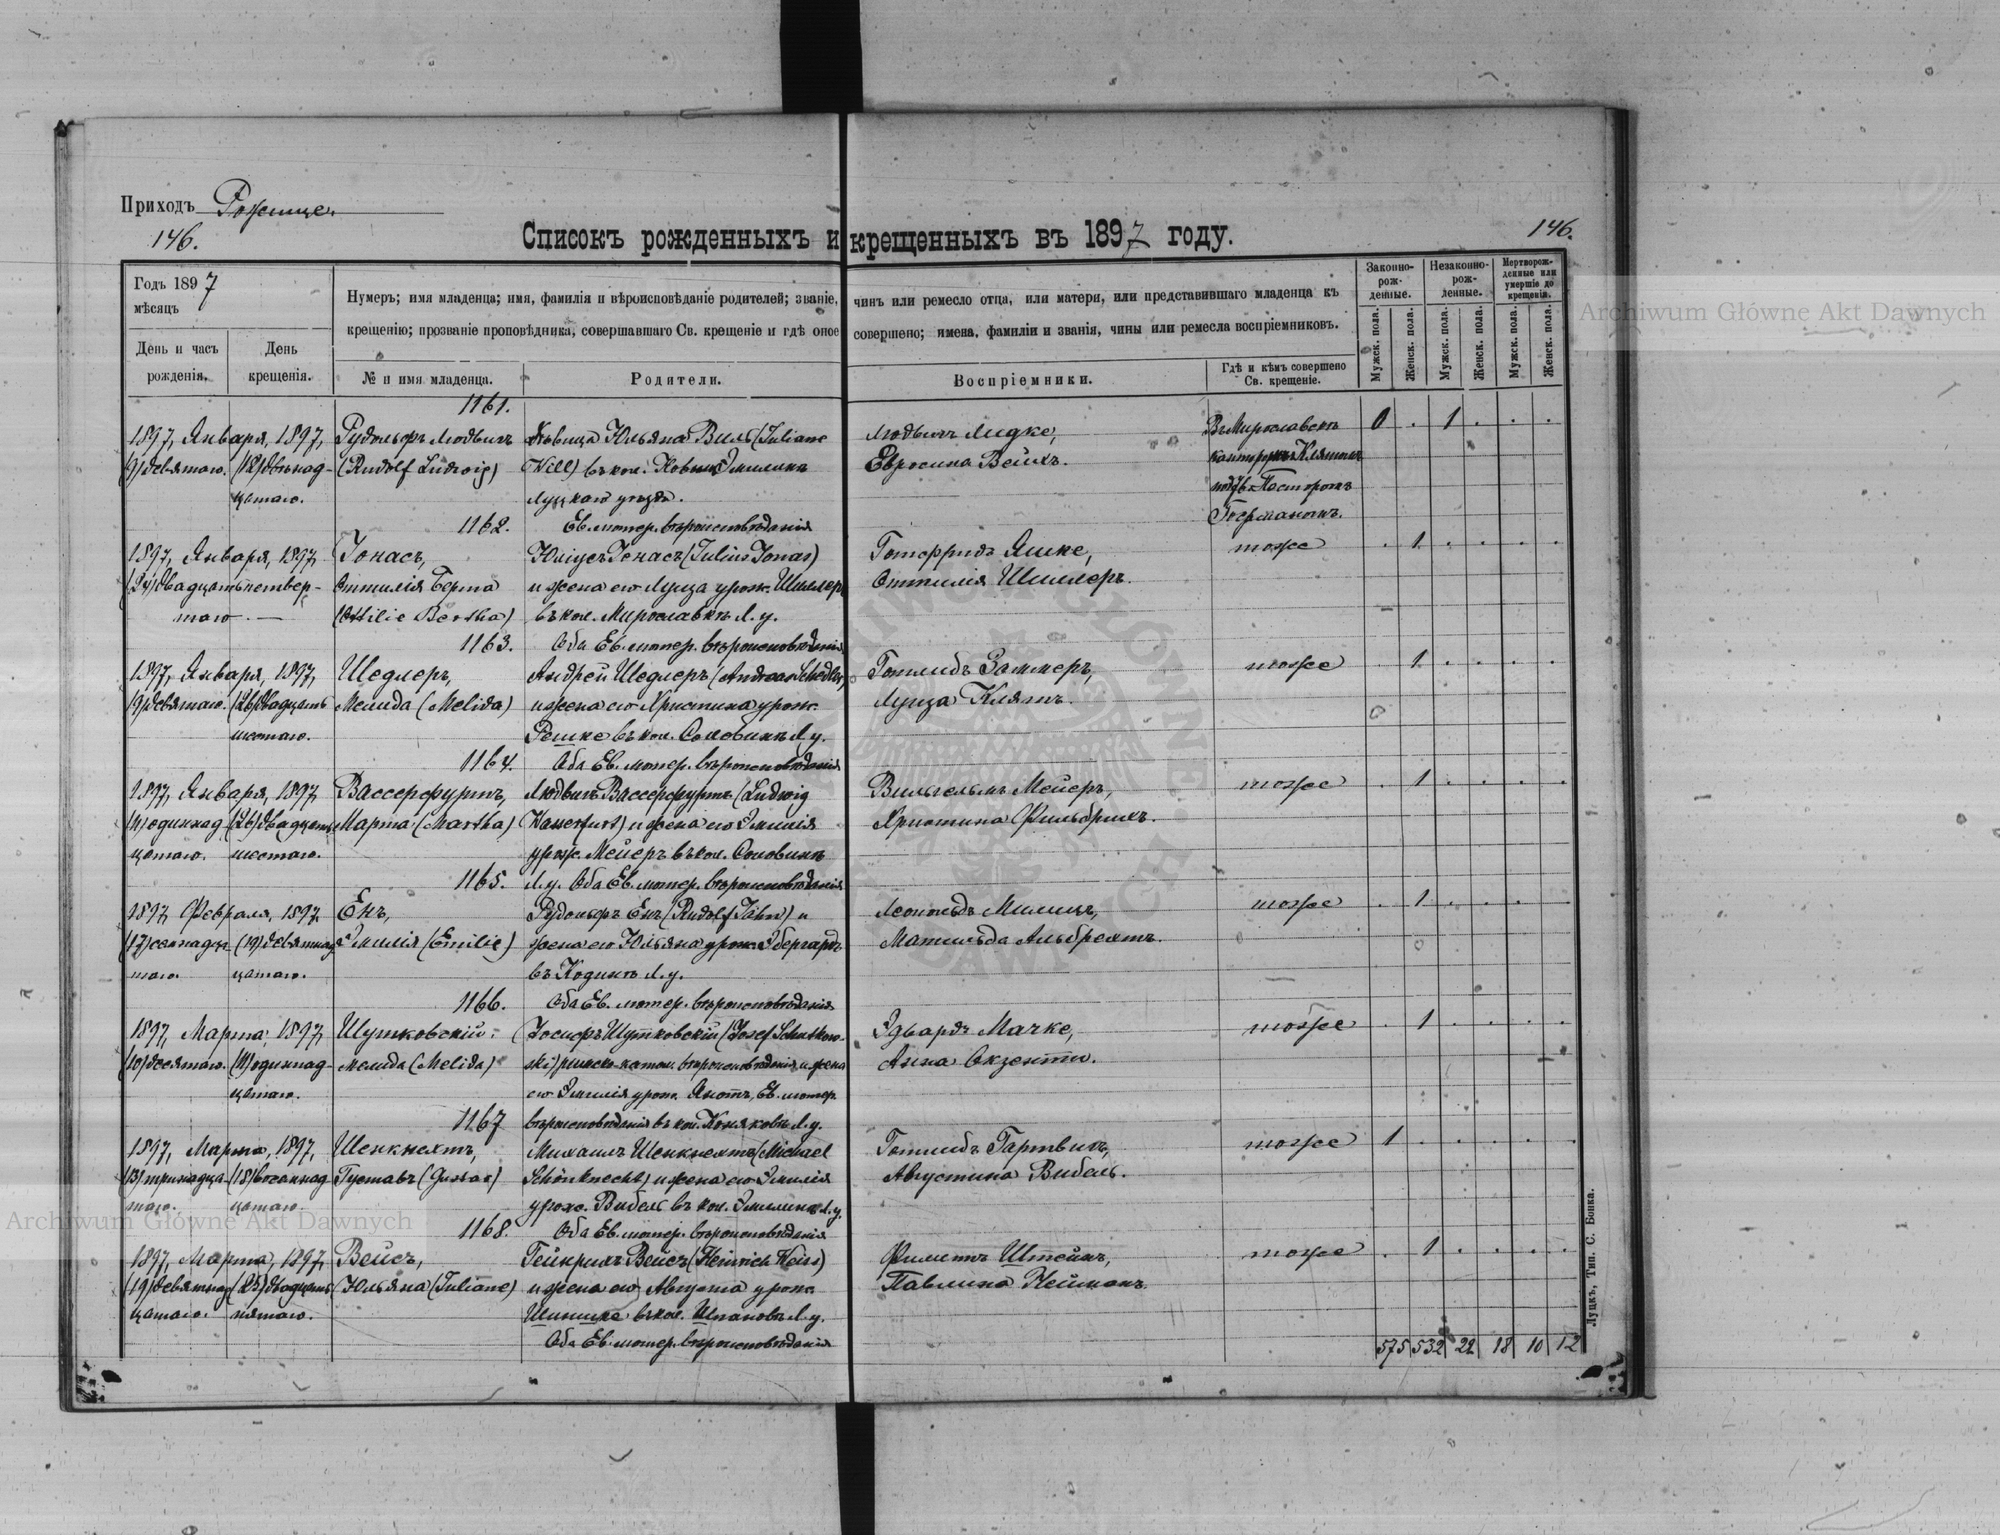 Приходъ Рожище.
146.
Списокъ рожденныхъ и крещенныхъ въ 1897 году.
146.
Годъ 1897
мѣсяцъ
День и часъ рожденія.
День крещенія.
Нумеръ; имя младенца; имя, фамилія и вѣроисповѣданіе родителей; званіе, чинъ или ремесло отца, или матери, или представившаго младенца къ
крещенію; прозваніе проповѣдника, совершавшаго Св. крещеніе и гдѣ оное совершено; имена, фамиліи и званія, чины или ремесла воспріемниковъ.
№ и имя младенца.
Родители.
Воспріемники.
Гдѣ и кѣмъ совершено Св. крещеніе.
Законно-рож-денные.
Незаконно-рож-ленные.
Мертворож-денные или умершіе до крещенія.
Мужск. пола.
Женск. пола.
Мужск. пола.
Женск. пола.
Мужск. пола.
Женск. пола.
1161.
1897, Января, 1897,
(9) девятаго. (12) двѣнад-
цатаго.
Рудольфъ Людвигъ
(Rudolf Ludwig)
Дѣвица Юльяна Виль (Juliane
Will) въ кол.
Луцкаго уѣзда.
Ев. лютер. вѣроисповѣданія
Людвигъ Лидке,
Евросина Вейхъ.
Въ Мирославкѣ
0 . 1 . . .
1162.
1897, Января, 1897,
(24) двадцатьчетвер-
таго. —
Іонасъ,
Оттилія Берта
(Ottilie Bertha)
Юліусъ Іонасъ (Julius Jonas)
и жена его Луиза урож. Шиллеръ
въ кол. Мирославкѣ Л. у.
Оба Ев. лютер. вѣроисповѣданія
Готфридъ Яшке,
Оттилія Шиллеръ.
тоже
. 1 . . . .
1163.
1897, Января, 1897,
(9) девятаго. (26) двадцать
шестаго.
Шедлеръ,
Мелида (Melida)
Андрей Шедлеръ (Andreas Schedler)
и жена его Христина урож.
Решке въ кол. Соловинѣ Л. у.
Оба Ев. лютер. вѣроисповѣданія
Готлибъ Заммеръ,
Луиза Клятъ.
тоже
. 1 . . . .
1164.
1897, Января, 1897,
(11) одиннад- (26) двадцать
цатаго. шестаго.
Вассерфуртъ,
Марта (Martha)
Людвигъ Вассерфуртъ (Ludwig
Wasserfurt) и жена его Эмилія
урож. Мейеръ въ кол. Соловинѣ
Л. у. Оба Ев. лютер. вѣроисповѣданія
Вильгельмъ Мейеръ,
Христина Фильбрихъ.
тоже
. 1 . . . .
1165.
1897, Февраля, 1897,
(17) семнадца- (19) девятнад-
таго. цатаго.
Енъ,
Эмилія (Emilie)
Рудольфъ Енъ (Rudolf Jähn) и
жена его Юльяна урож. Эбергардъ
въ Кодинѣ Л. у.
Оба Ев. лютер. вѣроисповѣданія
Леопольдъ Милицъ,
Матильда Альбрехтъ.
тоже
. 1 . . . .
1166.
1897, Марта, 1897,
(10) десятаго. (11) одиннад-
цатаго.
Шутковскій,
Мелида (Melida)
Іосифъ Шутковскій (Josef Schutkow-
ski) римско-катол. вѣроисповѣданія, и жена
его Эмилія урож. Яхотъ, Ев. лютер.
вѣроисповѣданія въ кол. Коняковѣ Л. у.
Эдьардъ Мачке,
Анна
тоже
. 1 . . . .
1167
1897, Марта, 1897,
(13) тринадца- (18) восемнад-
таго. цатаго.
Шенкнехтъ,
Густавъ (Gustav)
Михаилъ Шенкнехтъ (Michael
Schönknecht) и жена его Эмилія
урож. Вибель въ кол. Эмилинѣ Л. у.
Оба Ев. лютер. вѣроисповѣданія
Готлибъ Гартвигъ,
Августина Вибель.
тоже
1 . . . . .
1168.
1897, Марта, 1897,
(19) девятнад- (25) двадцать
цатаго. пятаго.
Вейсъ,
Юльяна (Juliane)
Гейнрихъ Вейсъ (Heinrich Weiss)
и жена его Августа урож.
въ кол. Шпановѣ Л. у.
Оба Ев. лютер. вѣроисповѣданія
Филиппъ Штейнъ,
Павлина Нейманъ.
тоже
. 1 . . . .
575 532 22 18 10 12
Луцкъ, Тип. С. Бонка.
Archiwum Główne Akt Dawnych
Archiwum Główne Akt Dawnych